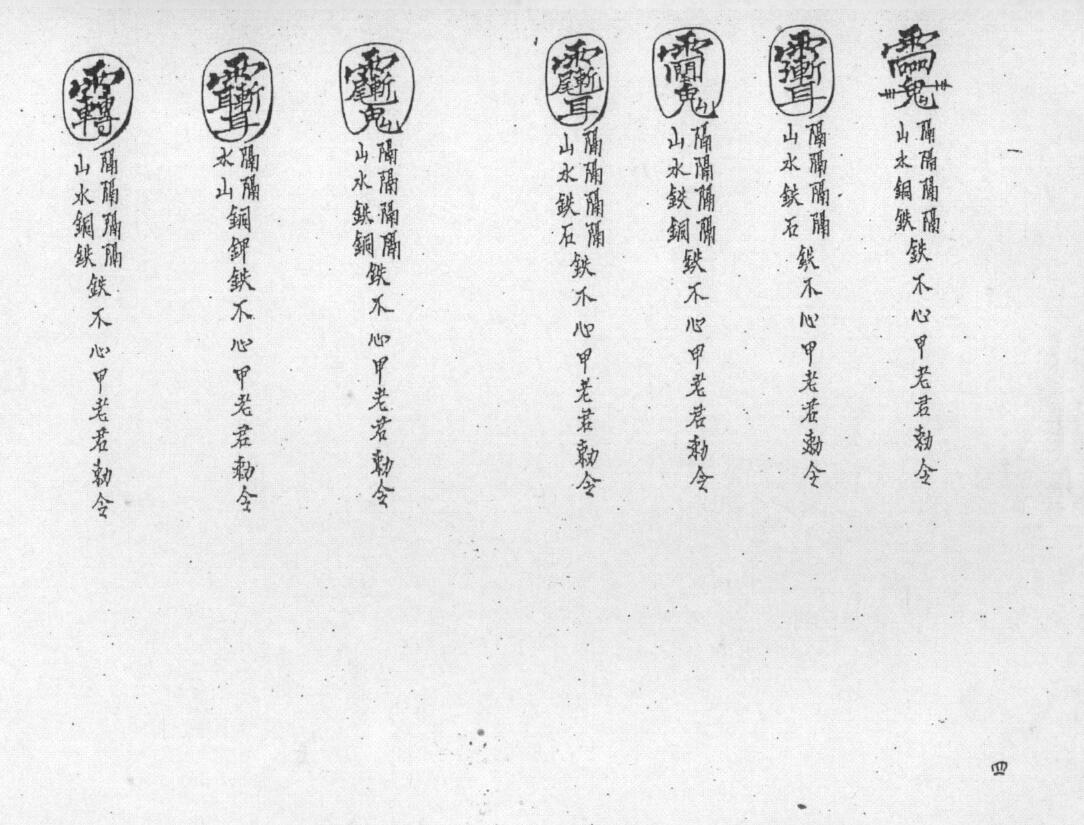 隔隔隔隔
山水銅鉄
鉄不心甲老君勅令
隔隔隔隔
山水鉄石
鉄不心甲老君勅令
隔隔隔隔
山水鉄銅
鉄不心甲老君勅令
隔隔隔隔
山水鉄石
鉄不心甲老君勅令
隔隔隔隔
山水鉄銅
鉄不心甲老君勅令
隔隔
水山
銅鉀鉄不心甲老君勅令
隔隔隔隔
山水銅鉄
鉄不心甲老君勅令
四